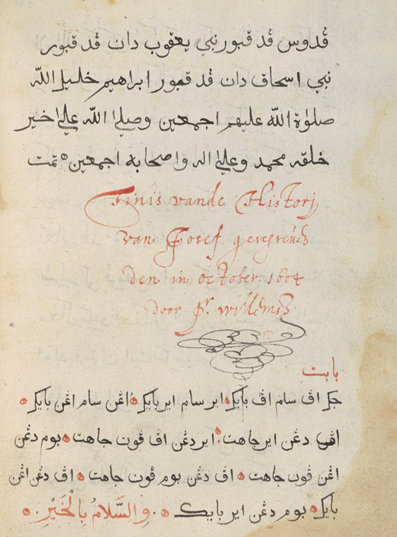 قدوس قد قبور نبي يعقوب دان قد قبور
نبي اسحاق دان قد قبور ابراهيم خليل الله
صلواة الله عليهم اجمعين وصلى الله على اخير
خلقه محمد وعلى اله واصحابه اجمعين تمت
Finis vande Historij
van Josef.
den in october. 1604
door Pr. willemsz
بابت
جک اڤ سام اڤ بايک اير سام اير بايک اڠن سام اڠن بايک
اڤي دڠن اير جاهت اير دڠن اڤ ڤون جاهت بوم دڠن
اڠن ڤون جاهت اڤ دڠن بوم ڤون جاهت اڤ دڠن اڠن
بايک بوم دڠن اير بايک والسَّلامُ بِالْخَيْرِ